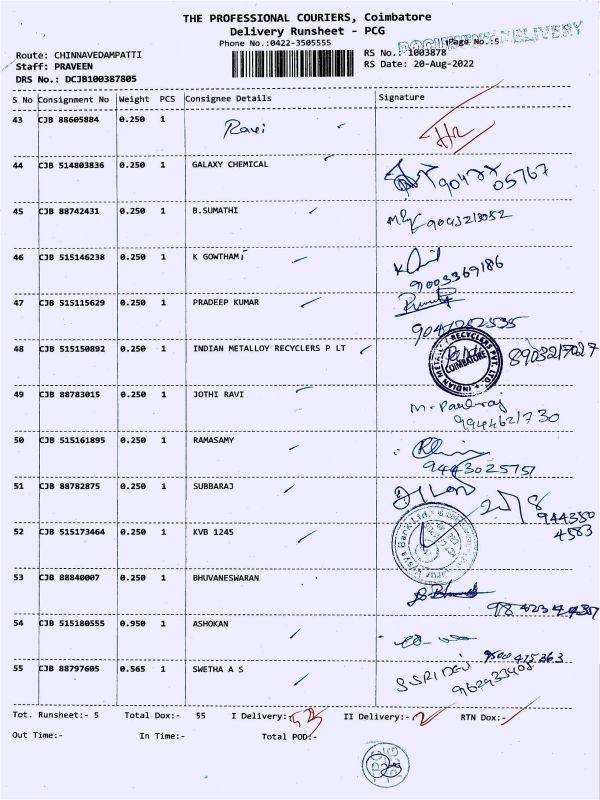 THE PROFESSIONAL COURIERS, Coimbatore
Delivery Runsheet - PCG
Phone No.:0422-3505555
DOCUMENT DELIVERY
Page No.:5
Route: CHINNAVEDAMPATTI
RS No.: 1003878
Staff: PRAVEEN
RS Date: 20-Aug-2022
DRS No.: DCJB100387805
S No Consignment No Weight PCS Consignee Details Signature
43 CJB 88605884 0.250 1 Ravi
44 CJB 514803836 0.250 1 GALAXY CHEMICAL
05767
45 CJB 88742431 0.250 1 B.SUMATHI
9043213052
46 CJB 515146238 0.250 1 K GOWTHAMi
9003369186
47 CJB 515115629 0.250 1 PRADEEP KUMAR
9047202535
48 CJB 515150892 0.250 1 INDIAN METALLOY RECYCLERS P LT
INDIAN METALLOY RECYCLERS PVT. LTD. COIMBATORE
8903217027
49 CJB 88783015 0.250 1 JOTHI RAVI
M. Paulraj
9944621730
50 CJB 515161895 0.250 1 RAMASAMY
9443025751
51 CJB 88782875 0.250 1 SUBBARAJ
20/8
944350
4583
52 CJB 515173464 0.250 1 KVB 1245
Vysya Bank Ltd.
53 CJB 88840007 0.250 1 BHUVANESWARAN
54 CJB 515180555 0.950 1 ASHOKAN
9500 415263
55 CJB 88797605 0.565 1 SWETHA A S
S SRI DEVI
962933408
Tot. Runsheet:- 5 Total Dox:- 55 I Delivery:- 53 II Delivery:- 2 RTN Dox:-
Out Time:- In Time:- Total POD:-